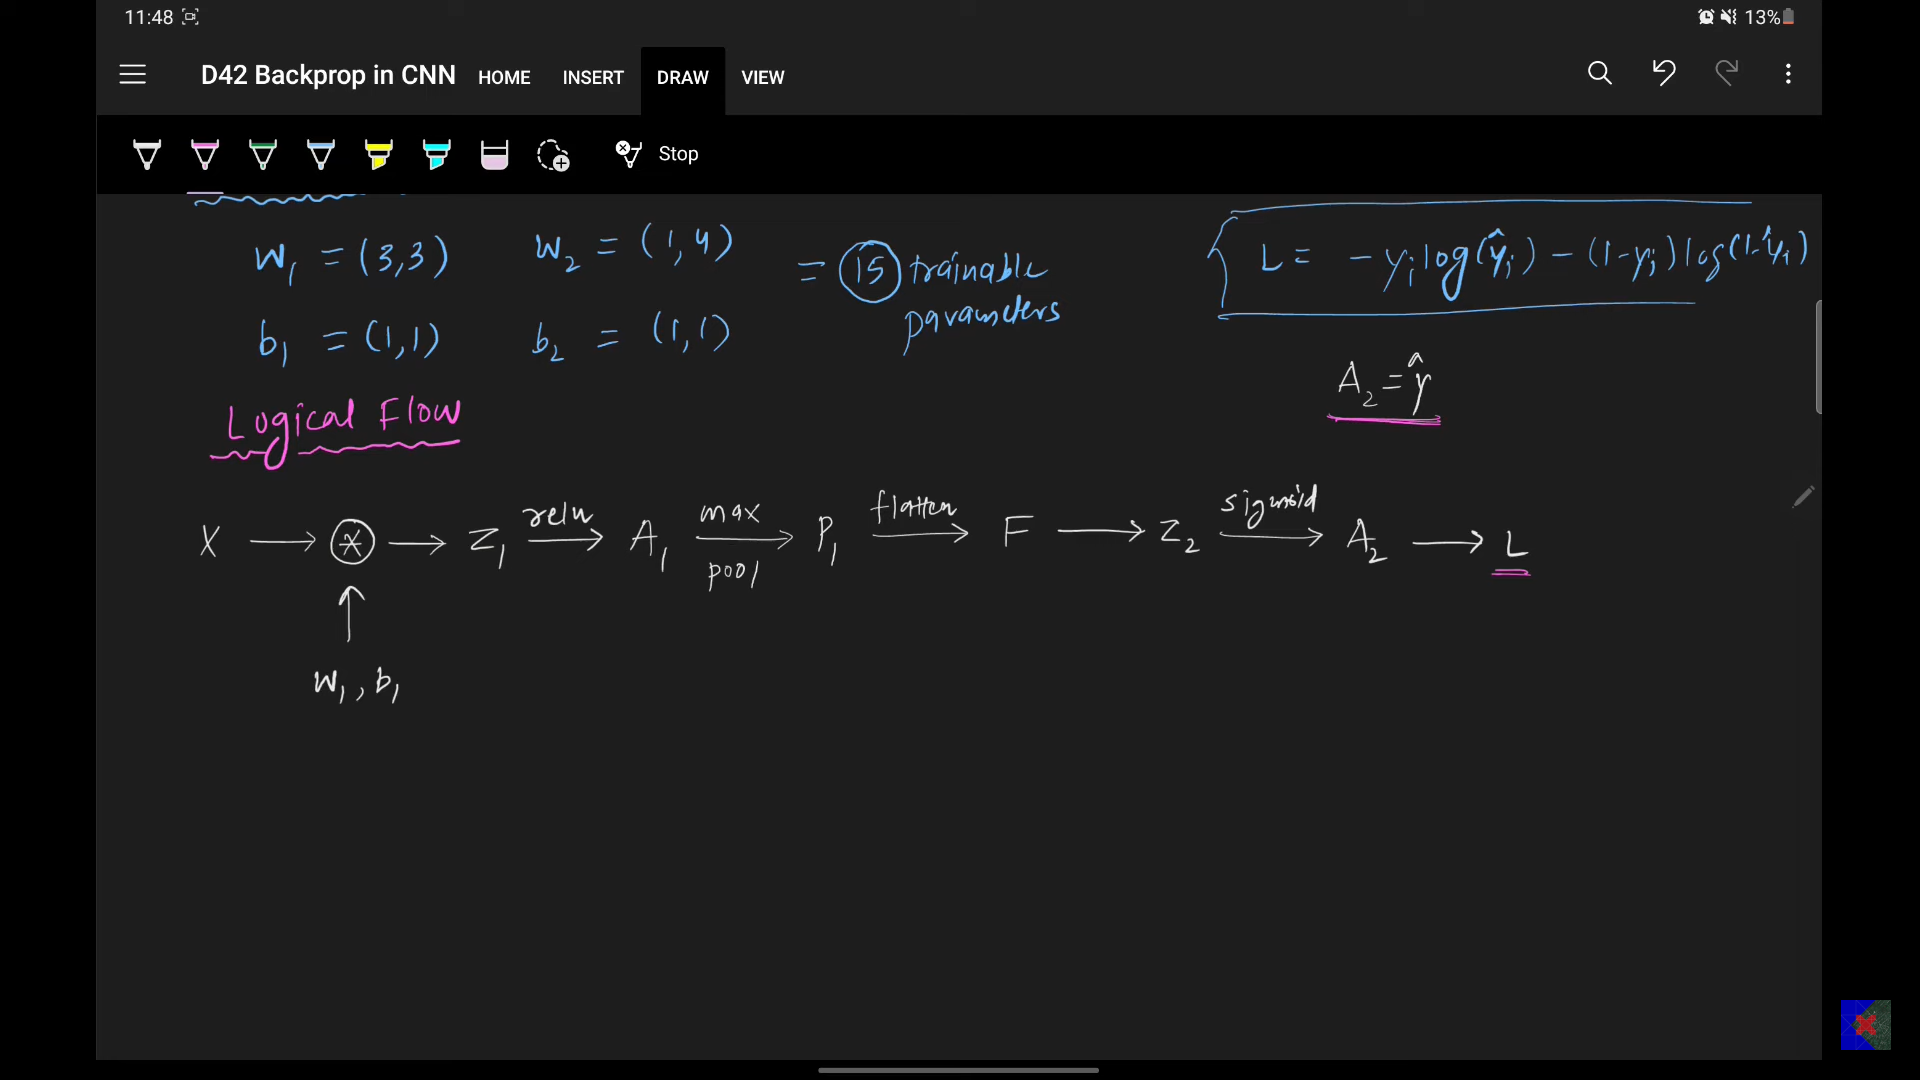 11:48 13%
D42 Backprop in CNN HOME INSERT DRAW VIEW
Stop
W₁ = (3,3) W₂ = (1,4) = 15 trainable parameters
b₁ = (1,1) b₂ = (1,1)
L = - yᵢ log(ŷᵢ) - (1-yᵢ) log(1-ŷᵢ)
A₂ = ŷ
Logical Flow
X → ⊛ → Z₁ relu → A₁ max pool → P₁ flatten → F → Z₂ sigmoid → A₂ → L
↑
W₁, b₁